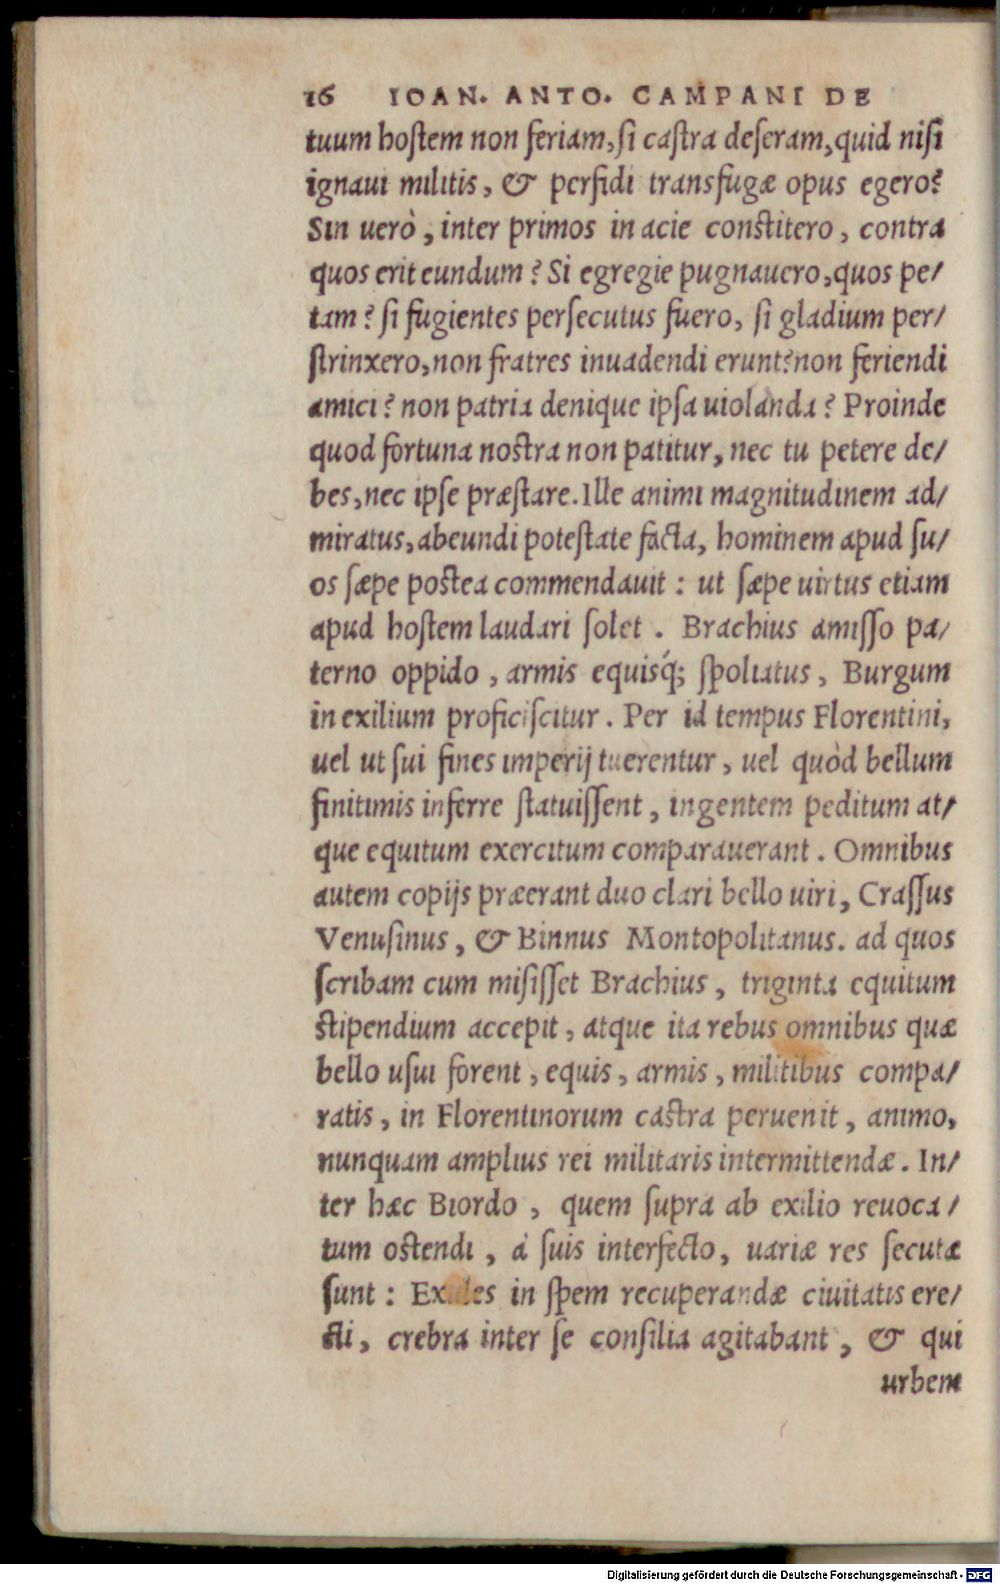 16 IOAN. ANTO. CAMPANI DE
tuum hoſtem non feriam, ſi caſtra deſeram, quid niſi
ignaui militis, & perfidi transfugæ opus egero?
Sin uerò, inter primos in acie conſtitero, contra
quos erit eundum? Si egregie pugnauero, quos pe/
tam? ſi fugientes perſecutus fuero, ſi gladium per/
ſtrinxero, non fratres inuadendi erunt? non feriendi
amici? non patria denique ipſa uiolanda? Proinde
quod fortuna noſtra non patitur, nec tu petere de/
bes, nec ipſe præſtare. Ille animi magnitudinem ad/
miratus, abeundi poteſtate facta, hominem apud ſu/
os ſæpe poſtea commendauit: ut ſæpe uirtus etiam
apud hoſtem laudari ſolet. Brachius amiſſo pa/
terno oppido, armis equisq́; ſpoliatus, Burgum
in exilium proficiſcitur. Per id tempus Florentini,
uel ut ſui fines imperij tuerentur, uel quòd bellum
finitimis inferre ſtatuiſſent, ingentem peditum at/
que equitum exercitum comparauerant. Omnibus
autem copijs præerant duo clari bello uiri, Craſſus
Venuſinus, & Binnus Montopolitanus. ad quos
ſcribam cum miſiſſet Brachius, triginta equitum
ſtipendium accepit, atque ita rebus omnibus quæ
bello uſui forent, equis, armis, militibus compa/
ratis, in Florentinorum caſtra peruenit, animo,
nunquam amplius rei militaris intermittendæ. In/
ter hæc Biordo, quem ſupra ab exilio reuoca/
tum oſtendi, à ſuis interfecto, uariæ res ſecutæ
ſunt: Exules in ſpem recuperandæ ciuitatis ere/
cti, crebra inter ſe conſilia agitabant, & qui
urbem
Digitalisierung gefördert durch die Deutsche Forschungsgemeinschaft - DFG